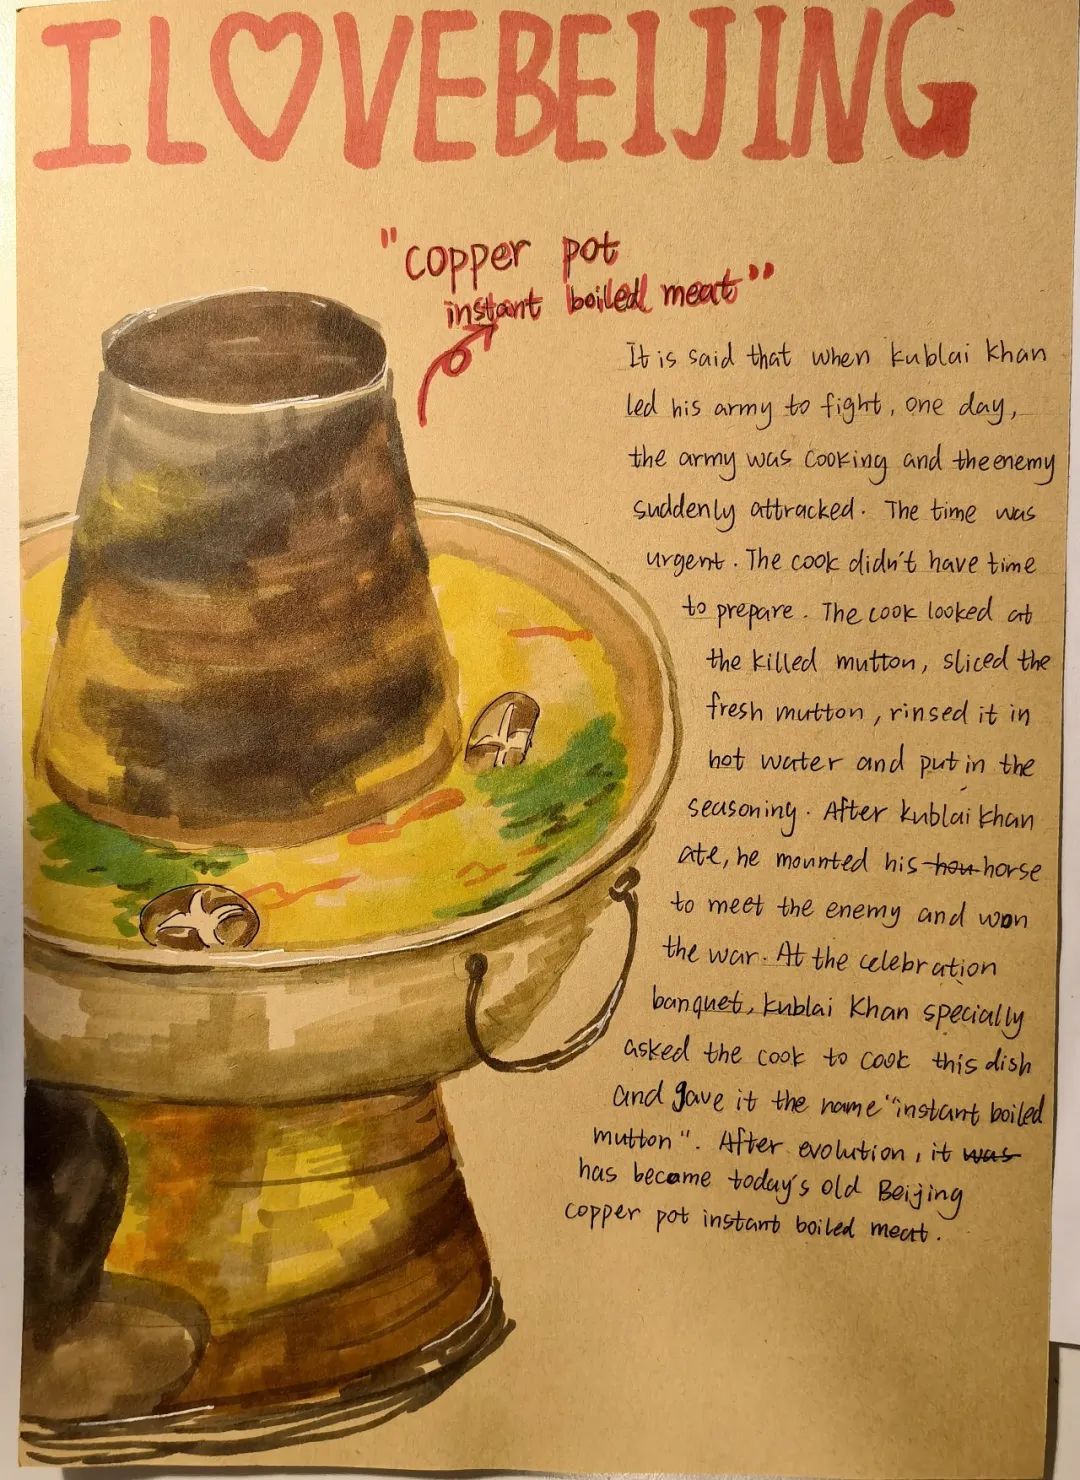 I L♡VE BEIJING
"copper pot
instant boiled meat"
It is said that when kublai khan
led his army to fight, one day,
the army was cooking and the enemy
suddenly attracked. The time was
urgent. The cook didn't have time
to prepare. The cook looked at
the killed mutton, sliced the
fresh mutton, rinsed it in
hot water and put in the
seasoning. After kublai khan
ate, he mounted his hou horse
to meet the enemy and won
the war. At the celebration
banquet, kublai Khan specially
asked the cook to cook this dish
and gave it the name "instant boiled
mutton". After evolution, it was
has became today's old Beijing
copper pot instant boiled meat.